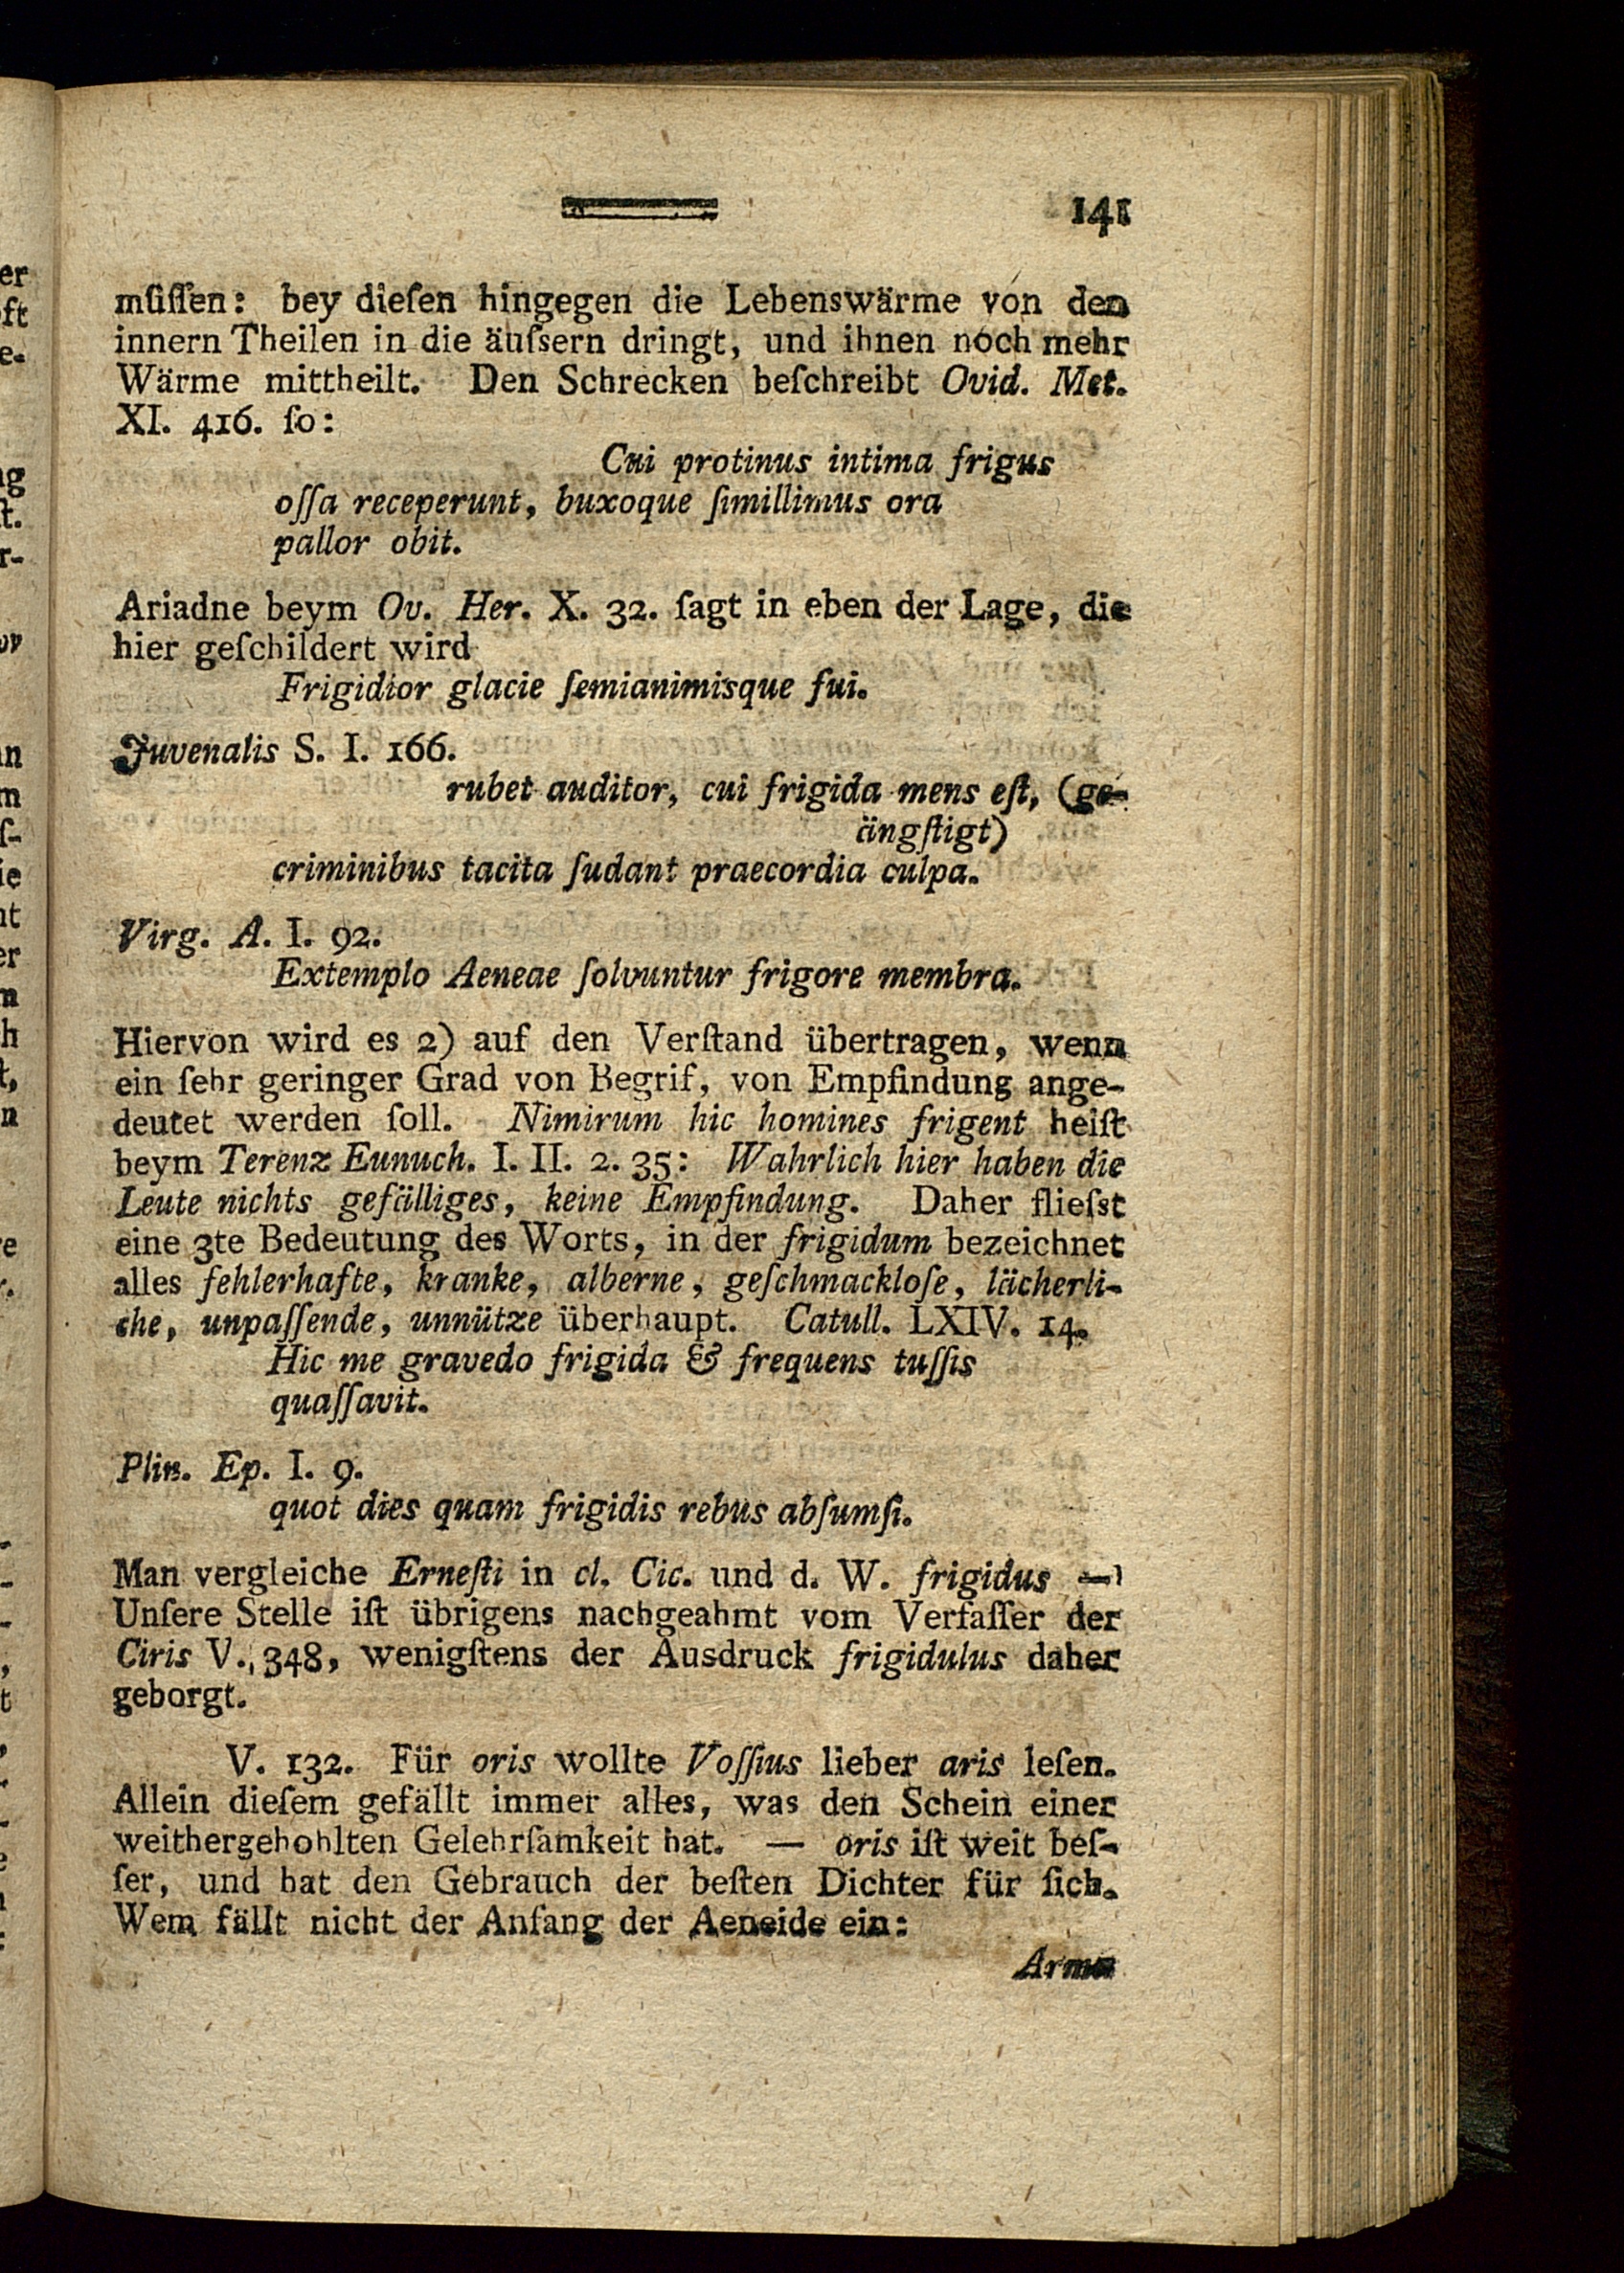 141
müſſen: bey dieſen hingegen die Lebenswärme von den
innern Theilen in die äuſsern dringt, und ihnen noch mehr
Wärme mittheilt. Den Schrecken beſchreibt Ovid. Met.
XI. 416. ſo:
Cui protinus intima frigus
oſſa receperunt, buxoque ſimillimus ora
pallor obit.
Ariadne beym Ov. Her. X. 32. ſagt in eben der Lage, die
hier geſchildert wird
Frigidior glacie ſemianimisque fui.
Juvenalis S. I. 166.
rubet auditor, cui frigida mens eſt, (ge-
ängſtigt)
criminibus tacita ſudant praecordia culpa.
Virg. A. I. 92.
Extemplo Aeneae ſolvuntur frigore membra.
Hiervon wird es 2) auf den Verſtand übertragen, wenn
ein ſehr geringer Grad von Begrif, von Empfindung ange-
deutet werden ſoll. Nimirum hic homines frigent heiſt
beym Terenz Eunuch. I. II. 2. 35: Wahrlich hier haben die
Leute nichts gefälliges, keine Empfindung. Daher flieſst
eine 3te Bedeutung des Worts, in der frigidum bezeichnet
alles fehlerhafte, kranke, alberne, geſchmackloſe, lächerli-
che, unpaſſende, unnütze überhaupt. Catull. LXIV. 14.
Hic me gravedo frigida & frequens tuſſis
quaſſavit.
Plin. Ep. I. 9.
quot dies quam frigidis rebus abſumſi.
Man vergleiche Erneſti in cl. Cic. und d. W. frigidus —
Unſere Stelle iſt übrigens nachgeahmt vom Verfaſſer der
Ciris V. 348, wenigſtens der Ausdruck frigidulus daher
geborgt.
V. 132. Für oris wollte Voſſius lieber aris leſen.
Allein dieſem gefällt immer alles, was den Schein einer
weithergehohlten Gelehrſamkeit hat. — oris iſt weit beſ-
ſer, und hat den Gebrauch der beſten Dichter für ſich.
Wem fällt nicht der Anfang der Aeneide ein:
Arma